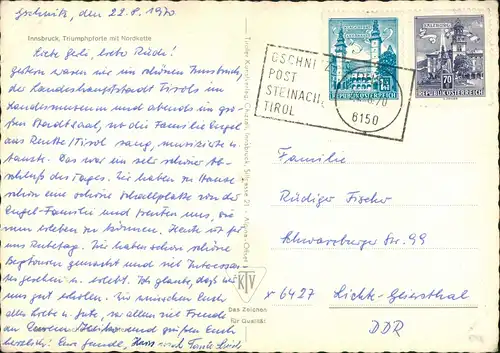 Gschnitz, den 22.8.1970
Innsbruck, Triumphpforte mit Nordkette
Liebe Gerli, lieber Rüdi!
Gestern waren wir im schönen Innsbruck,
der Landeshauptstadt Tirols im
Landesmuseum und abends im gro-
ßen Stadtsaal, wo die Familie Engel
aus Reutte/Tirol sang, musizierte u.
tanzte. Das war ein sehr schöner Ab-
schluß des Tages. Wir haben zu Hause
schon eine schöne Schallplatte von der
Engel-Familie und freuten uns, sie
nun erleben zu können. Heute ist für
uns Ruhetag. Wir haben schon schöne
Bergtouren gemacht und viel Interessan-
tes gesehen u. erlebt. Ich glaube, daß wir
uns gut erholen. Wir wünschen Euch
alles Liebe u. Gute, vor allem viel Freude
an und grüßen Euch
herzlich! Eure Hans und Tante
Tiroler Kunstverlag Chizzali, Innsbruck
KTV
Das Zeichen
für Qualität
GSCHNITZ
POST
STEINACH,
TIROL
6150
REPUBLIK ÖSTERREICH
70
REPUBLIK ÖSTERREICH
Familie
Rüdiger Fischer
Schwarzburger Str. 99
x 6427 Lichte-Geiersthal
DDR